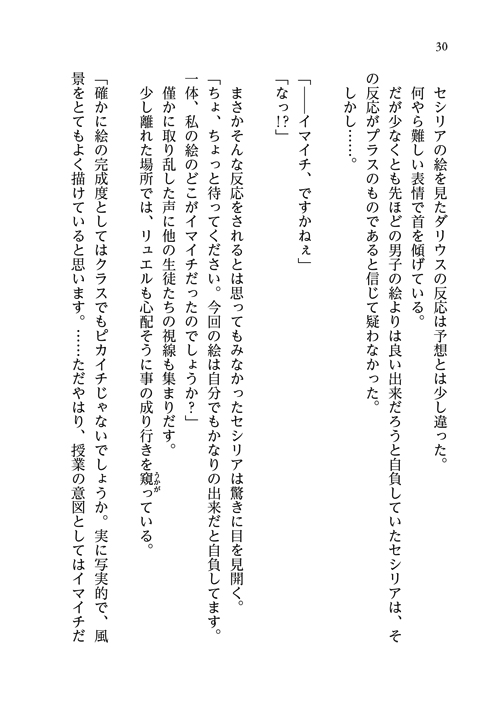 30
セシリアの絵を見たダリウスの反応は予想とは少し違った。
何やら難しい表情で首を傾げている。
だが少なくとも先ほどの男子の絵よりは良い出来だろうと自負していたセシリアは、そ
の反応がプラスのものであると信じて疑わなかった。
しかし……。
「――イマイチ、ですかねぇ」
「なっ!?」
まさかそんな反応をされるとは思ってもみなかったセシリアは驚きに目を見開く。
「ちょ、ちょっと待ってください。今回の絵は自分でもかなりの出来だと自負してます。
一体、私の絵のどこがイマイチだったのでしょうか？」
僅かに取り乱した声に他の生徒たちの視線も集まりだす。
少し離れた場所では、リュエルも心配そうに事の成り行きを窺うかがっている。
「確かに絵の完成度としてはクラスでもピカイチじゃないでしょうか。実に写実的で、風
景をとてもよく描けていると思います。……ただやはり、授業の意図としてはイマイチだ